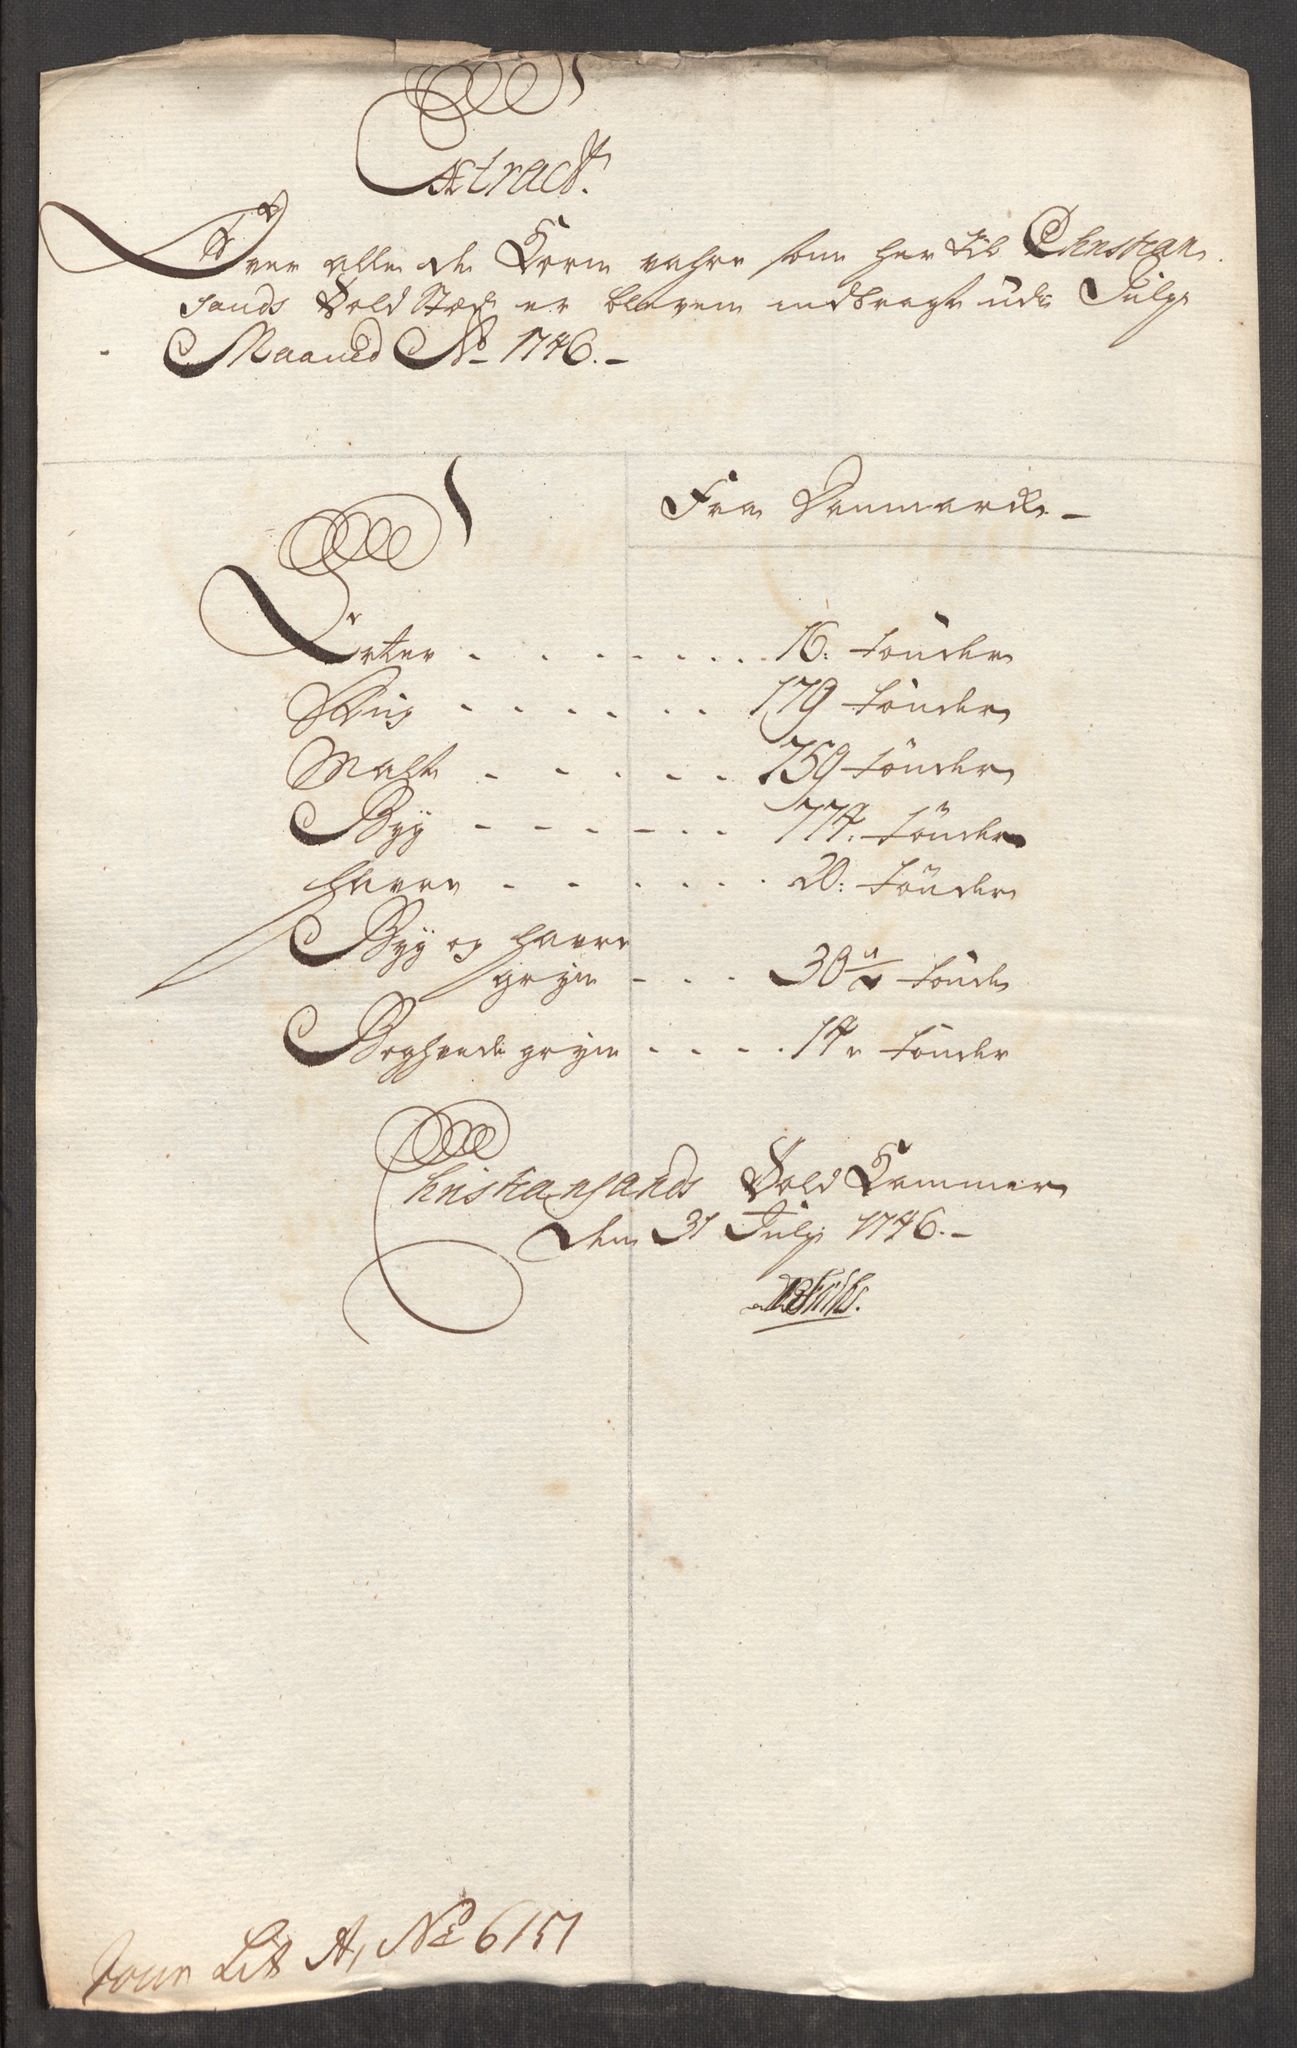 Extract.
Over alle de Korn vahre som her til Christian
sands Told Stæd er bleven indbragt udi July
Maaned Ao 1746.
Fra Danmark.
Erter . . . . . . . 16. tönder
Rug . . . . . . 179 tönder
Malt . . . . . 759 tönder
Byg . . . . . . 774. tönder
Havre . . . . . . 20. tönder
Byg og Havre
gryn . . . 30 1/2 tönde
Boghvede gryn . . . . 14 tönder
Christiansands Told Kammer
den 31 July 1746.
Jour Lit A, No 6151